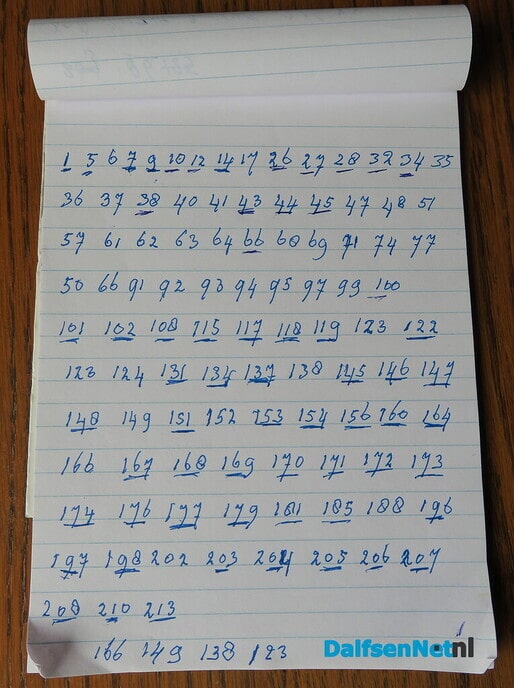 1 5 6 7 9 10 12 14 17 26 27 28 32 34 35
36 37 38 40 41 43 44 45 47 48 51
57 61 62 63 64 66 68 69 71 74 77
50 66 91 92 93 94 95 97 99 100
101 102 108 115 117 118 119 123 122
123 124 131 134 137 138 145 146 147
148 149 151 152 153 154 156 160 164
166 167 168 169 170 171 172 173
174 176 177 179 181 185 188 196
197 198 202 203 204 205 206 207
208 210 213
166 149 138 123
DalfsenNet.nl